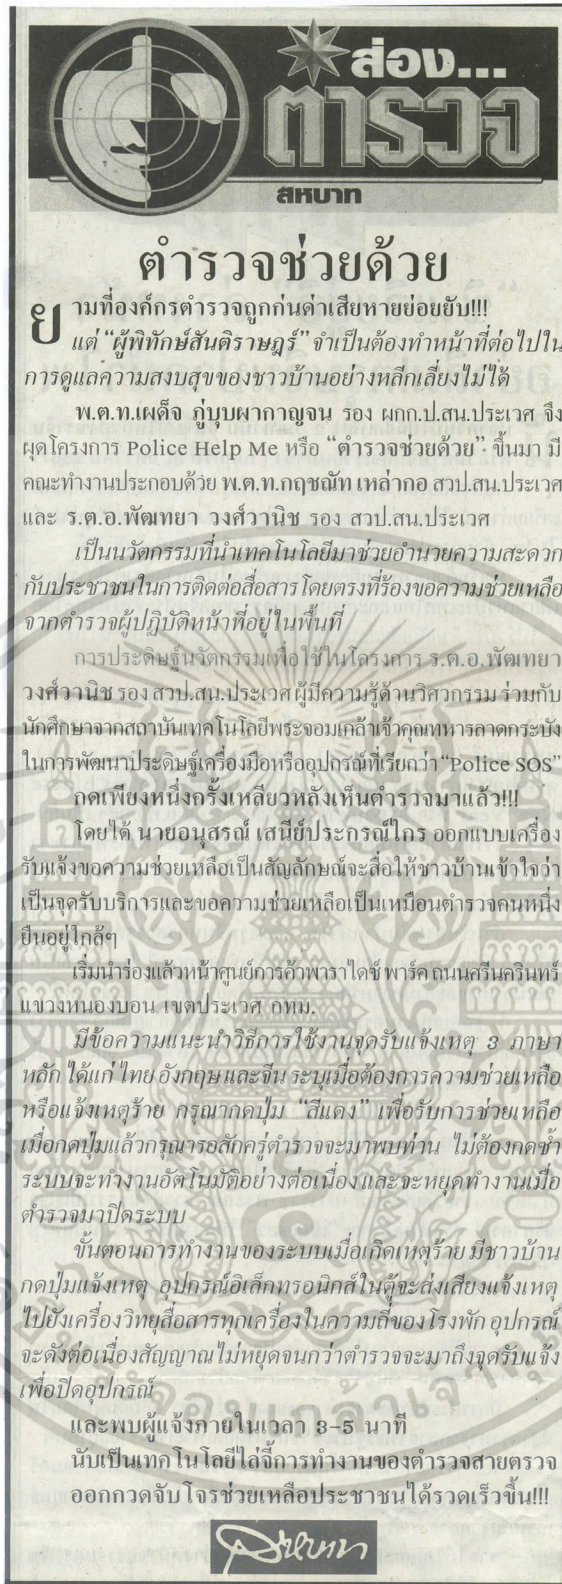 ส่อง...
ตำรวจ
สหบาท
ตำรวจช่วยด้วย
ยามที่องค์กรตำรวจถูกก่นด่าเสียหายย่อยยับ!!!
แต่ “ผู้พิทักษ์สันติราษฎร์” จำเป็นต้องทำหน้าที่ต่อไปใน
การดูแลความสงบสุขของชาวบ้านอย่างหลีกเลี่ยงไม่ได้
พ.ต.ท.เผด็จ ภู่บุบผากาญจน รอง ผกก.ป.สน.ประเวศ จึง
ผุดโครงการ Police Help Me หรือ “ตำรวจช่วยด้วย” ขึ้นมา มี
คณะทำงานประกอบด้วย พ.ต.ท.กฤชณัท เหล่ากอ สวป.สน.ประเวศ
และ ร.ต.อ.พัฒทยา วงศ์วานิช รอง สวป.สน.ประเวศ
เป็นนวัตกรรมที่นำเทคโนโลยีมาช่วยอำนวยความสะดวก
กับประชาชนในการติดต่อสื่อสารโดยตรงที่ร้องขอความช่วยเหลือ
จากตำรวจผู้ปฏิบัติหน้าที่อยู่ในพื้นที่
การประดิษฐ์นวัตกรรมเพื่อใช้ในโครงการ ร.ต.อ.พัฒทยา
วงศ์วานิช รอง สวป.สน.ประเวศ ผู้มีความรู้ด้านวิศวกรรม ร่วมกับ
นักศึกษาจากสถาบันเทคโนโลยีพระจอมเกล้าเจ้าคุณทหารลาดกระบัง
ในการพัฒนาประดิษฐ์เครื่องมือหรืออุปกรณ์ที่เรียกว่า “Police SOS”
กดเพียงหนึ่งครั้งเหลียวหลังเห็นตำรวจมาแล้ว!!!
โดยได้ นายอนุสรณ์ เสนีย์ประกรณ์ไกร ออกแบบเครื่อง
รับแจ้งขอความช่วยเหลือเป็นสัญลักษณ์จะสื่อให้ชาวบ้านเข้าใจว่า
เป็นจุดรับบริการและขอความช่วยเหลือเป็นเหมือนตำรวจคนหนึ่ง
ยืนอยู่ใกล้ๆ
เริ่มนำร่องแล้วหน้าศูนย์การค้าพาราไดซ์ พาร์ค ถนนศรีนครินทร์
แขวงหนองบอน เขตประเวศ กทม.
มีข้อความแนะนำวิธีการใช้งานจุดรับแจ้งเหตุ 3 ภาษา
หลัก ได้แก่ ไทย อังกฤษ และจีน ระบุเมื่อต้องการความช่วยเหลือ
หรือแจ้งเหตุร้าย กรุณากดปุ่ม “สีแดง” เพื่อรับการช่วยเหลือ
เมื่อกดปุ่มแล้วกรุณารอสักครู่ตำรวจจะมาพบท่าน ไม่ต้องกดซ้ำ
ระบบจะทำงานอัตโนมัติอย่างต่อเนื่อง และจะหยุดทำงานเมื่อ
ตำรวจมาปิดระบบ
ขั้นตอนการทำงานของระบบเมื่อเกิดเหตุร้าย มีชาวบ้าน
กดปุ่มแจ้งเหตุ อุปกรณ์อิเล็กทรอนิกส์ในตู้จะส่งเสียงแจ้งเหตุ
ไปยังเครื่องวิทยุสื่อสารทุกเครื่องในความถี่ของโรงพัก อุปกรณ์
จะดังต่อเนื่องสัญญาณไม่หยุดจนกว่าตำรวจจะมาถึงจุดรับแจ้ง
เพื่อปิดอุปกรณ์
และพบผู้แจ้งภายในเวลา 3-5 นาที
นับเป็นเทคโนโลยีไล่จี้การทำงานของตำรวจสายตรวจ
ออกกวดจับโจรช่วยเหลือประชาชนได้รวดเร็วขึ้น!!!
สหบาท